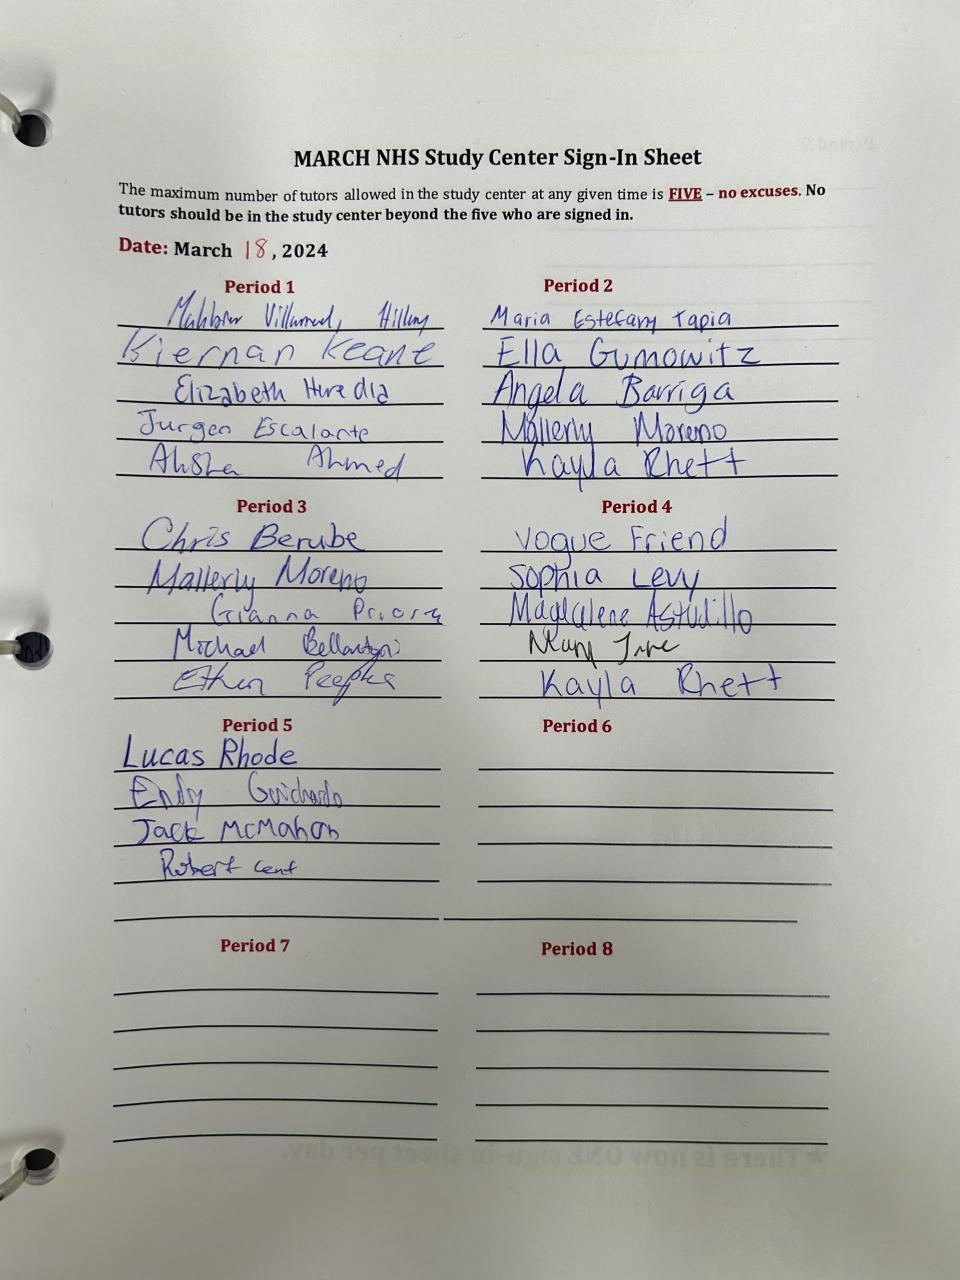 MARCH NHS Study Center Sign-In Sheet
The maximum number of tutors allowed in the study center at any given time is FIVE – no excuses. No
tutors should be in the study center beyond the five who are signed in.
Date: March 18, 2024
Period 1
Hillary
Kiernan Keane
Elizabeth Heredia
Jurgen Escalante
Ahmed
Period 2
Maria Estefany Tapia
Ella Gumowitz
Angela Barriga
Mallerly Moreno
Kayla Rhett
Period 3
Chris Berube
Mallerly Moreno
Gianna
Michael
Ethan
Period 4
Vogue Friend
Sophia Levy
Magdalene Astudillo
Kayla Rhett
Period 5
Lucas Rhode
Guichardo
Jack McMahon
Robert
Period 6
Period 7
Period 8